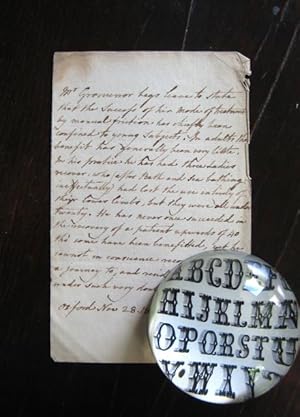 Mr Grosvenor begs leave to state
that the Success of his Mode of treatment
by manual friction has chiefly been
confined to young Subjects: In adults, the
benefit has generally been very little.
In his practice he has had three ladies
recover, who after Bath and Sea bathing
ineffectually had lost the use entirely of
their lower Limbs, but they were all under
twenty. He has never once succeeded in
the recovery of a patient upwards of 40
tho some have been benefitted,
cannot in conscience
a journey to, and
under such very
Oxford Nov 28
ABCD
HIJKLM
OPQRST